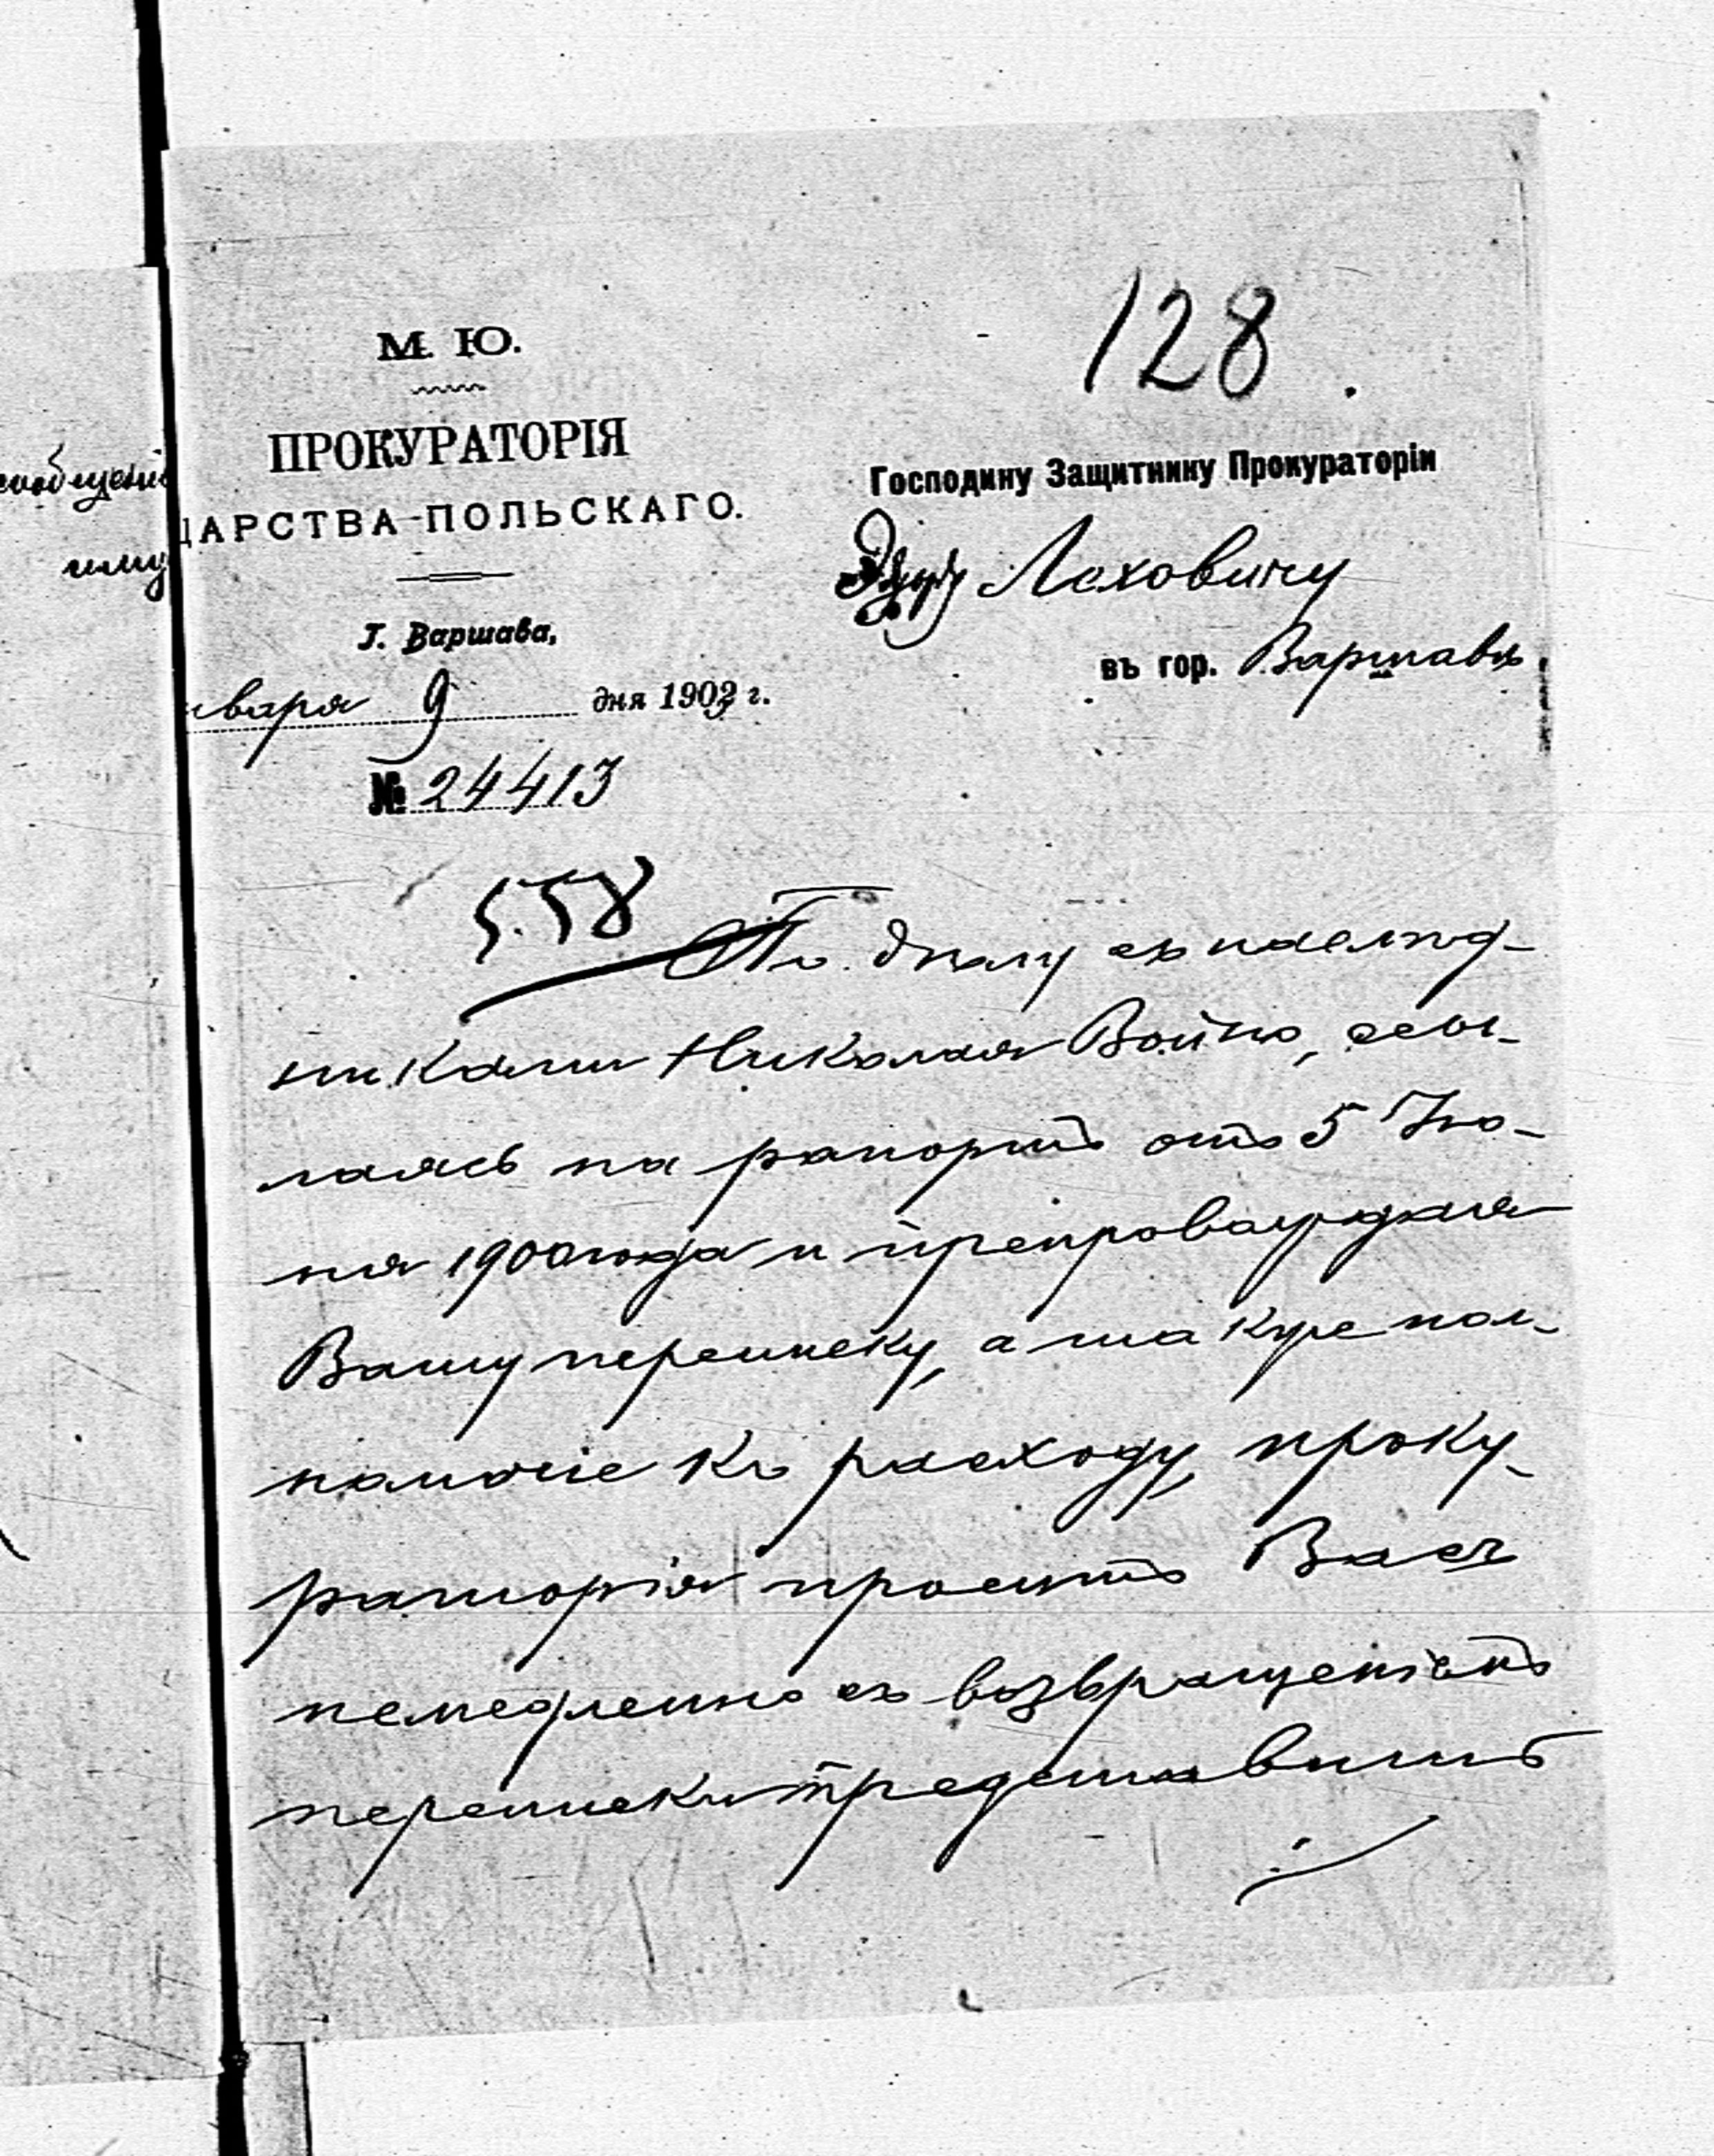 128
М. Ю.
ПРОКУРАТОРІЯ
ЦАРСТВА-ПОЛЬСКАГО.
Г. Варшава,
нваря 9 дня 1903 г.
№ 24413
Господину Защитнику Прокураторіи
Леховичу
въ гор. Варшавѣ
558
По дѣлу съ наслѣд-
никами Николая Войно, ссы-
лаясь на рапортъ отъ 5 Iю-
ня 1900 года и препровождая
Вашу переписку, а также пол-
номочіе къ расходу, проку-
раторія проситъ Васъ
немедленно съ возвращеніемъ
переписки представить